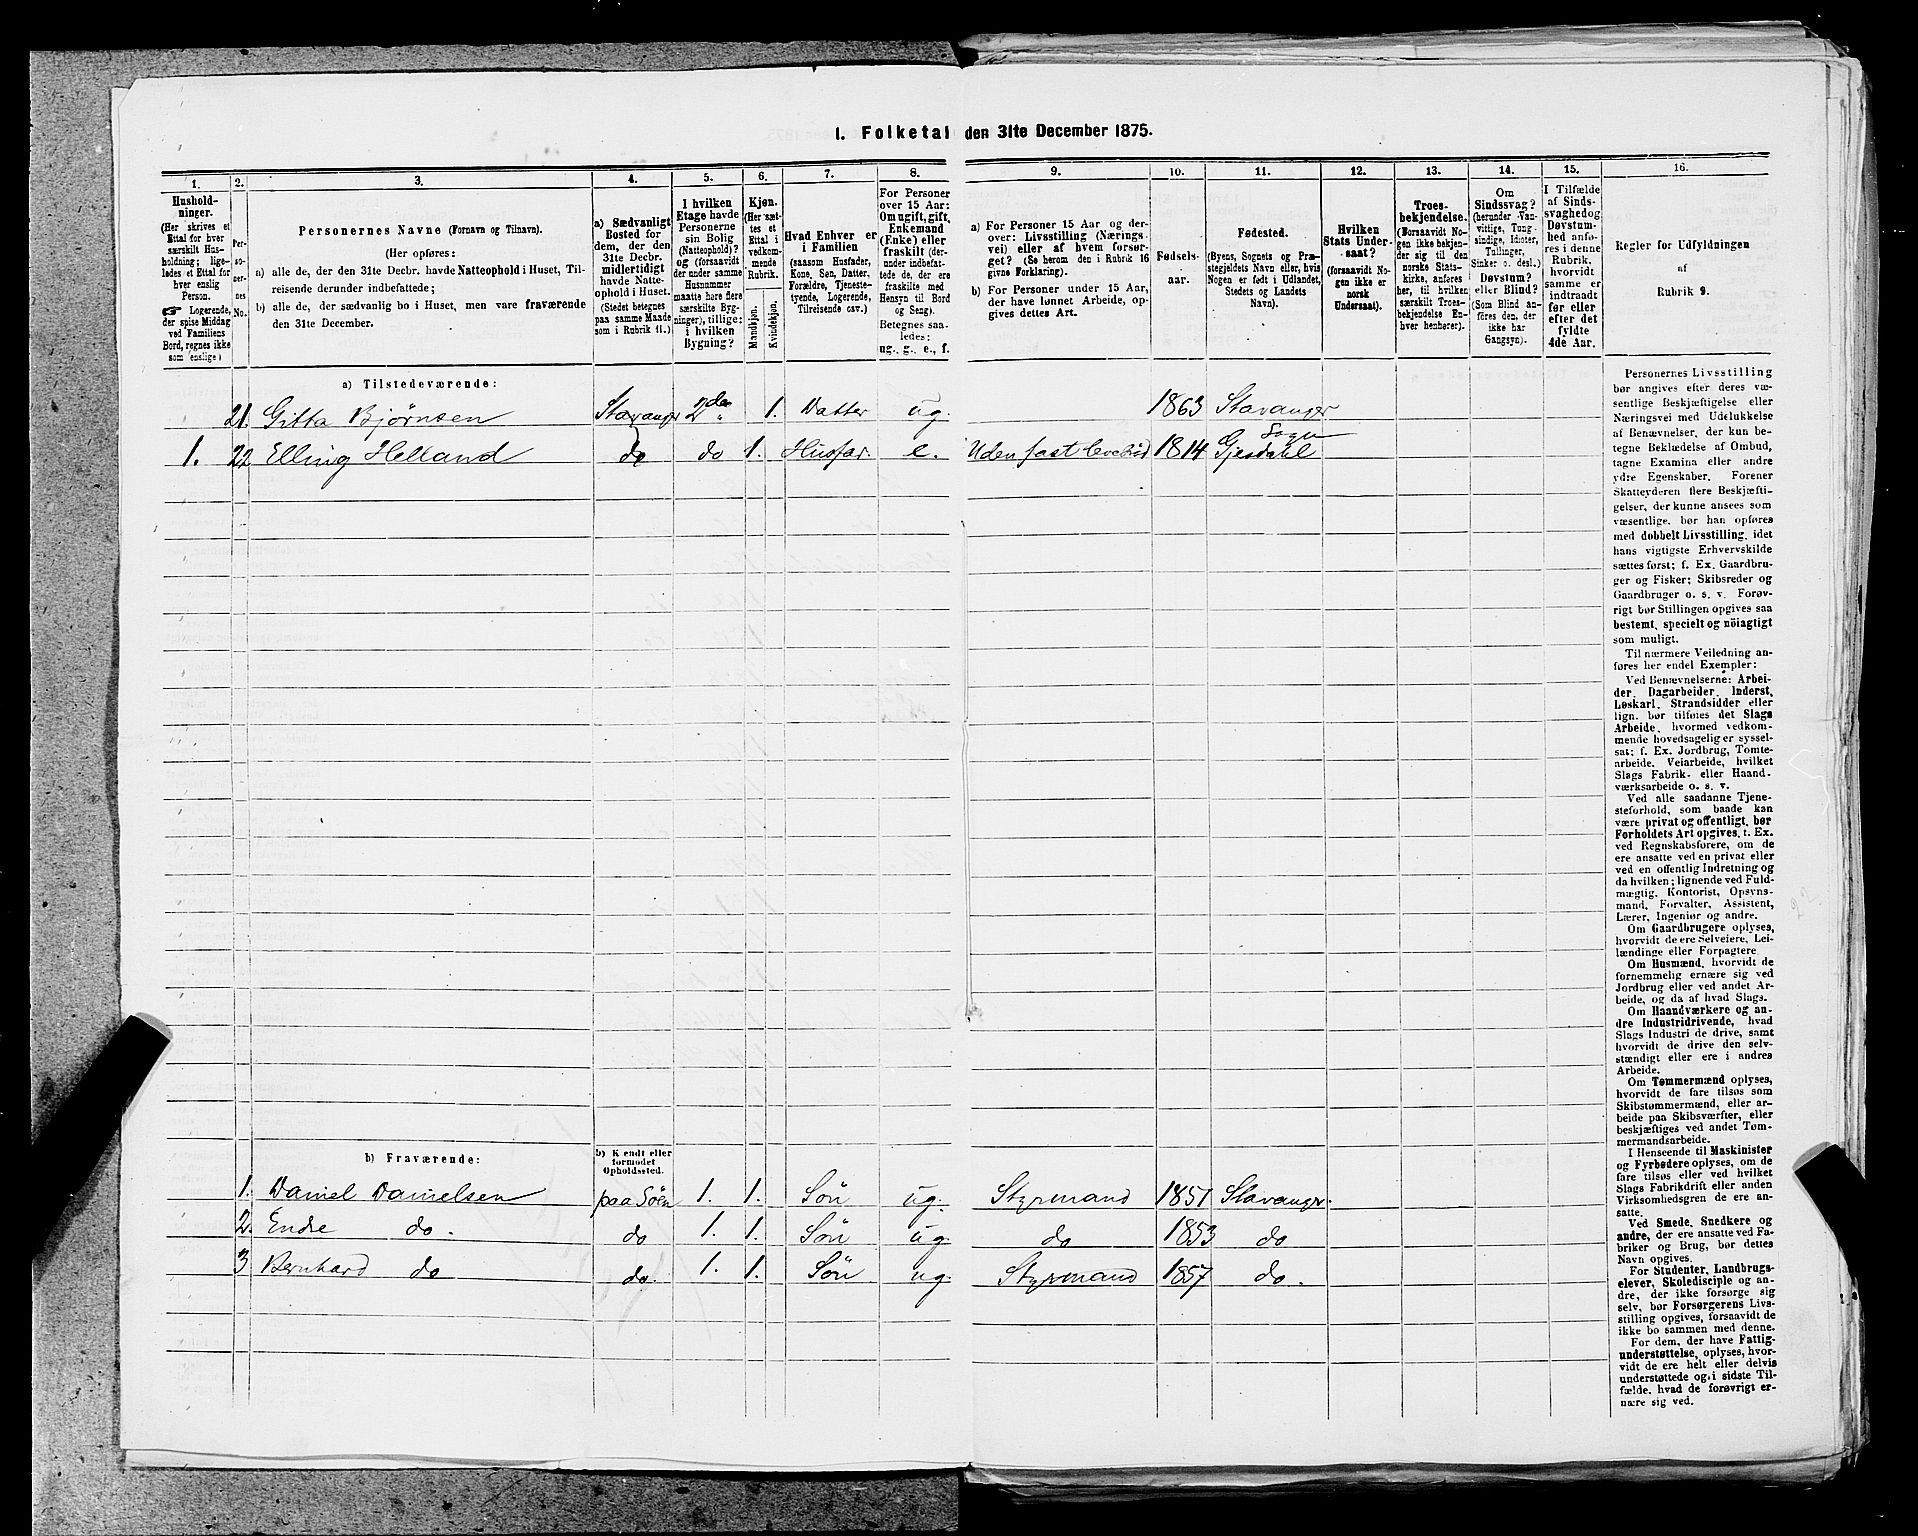 1. Folketal den 31te December 1875.
1. 2. 3. 4. 5. 6. 7. 8. 9. 10. 11. 12. 13. 14. 15. 16.
Hushold-
ninger.
(Her skrives et
Ettal for hver
særskilt Hus-
holdning; lige-
ledes et Ettal for
hver enslig
Person.
☛ Logerende,
der spise Middag
ved Familiens
Bord, regnes ikke
som enslige)
Per-
so-
ner-
nes
No.
Personernes Navne (Fornavn og Tilnavn).
(Her opføres:
a) alle de, der den 31te Decbr. havde Natteophold i Huset, Til-
reisende derunder indbefattede;
b) alle de, der sædvanlig bo i Huset, men vare fraværende
den 31te December.
a) Sædvanligt
Bosted for
dem, der den
31te Decbr.
midlertidigt
havde Natte-
ophold i Huset.
(Stedet betegnes
paa samme Maade
som i Rubrik 11.)
I hvilken
Etage havde
Personerne
sin Bolig
(Natteophold)?
og (forsaavidt
der under samme
Husnummer
maatte høre flere
særskilte Byg-
ninger), tillige:
i hvilken
Bygning?
Kjøn.
(Her sæt-
tes et
Ettal i
vedkom-
mende
Rubrik.
Mandkjøn.
Kvindekjøn.
Hvad Enhver er
i Familien
(saasom Husfader,
Kone, Søn, Datter,
Forældre, Tjeneste-
tyende, Logerende,
Tilreisende osv.)
For Personer
over 15 Aar:
Om ugift, gift,
Enkemand
(Enke) eller
fraskilt (der-
under indbefat-
tede de, der ere
fraskilte med
Hensyn til Bord
og Seng).
Betegnes saa-
ledes:
ug., g., e., f.
a) For Personer 15 Aar og der-
over: Livsstilling (Nærings-
vei) eller af hvem forsør-
get? (Se herom den i Rubrik 16
givne Forklaring).
b) For Personer under 15 Aar,
der have lønnet Arbeide, op-
gives dettes Art.
Fødsels-
aar.
Fødested.
(Byens, Sognets og Præ-
stegjeldets Navn eller, hvis
Nogen er født i Udlandet,
Stedets og Landets
Navn).
Hvilken
Stats Under-
saat?
(forsaavidt No-
gen ikke er
norsk
Undersaat).
Troes-
bekjendelse.
(Forsaavidt No-
gen ikke bekjen-
der sig til den
norske Stats-
kirke, anføres
her, til hvilken
særskilt Troes-
bekjendelse En-
hver henhører).
Om
Sindssvag?
(herunder Van-
vittige, Tung-
sindige, Idioter,
Tullinger,
Sinker o. desl.)
Døvstum?
eller Blind?
(Som Blind an-
føres den, der
ikke har
Gangsyn).
I Tilfælde
af Sinds-
svaghed og
Døvstum-
hed anfø-
res i denne
Rubrik,
hvorvidt
samme er
indtraadt
før eller
efter det
fyldte
4de Aar.
Regler for Udfyldningen
af
Rubrik 9.
a) Tilstedeværende:
21. Gitta Bjørnsen Stavanger 2den " 1. Datter ug. 1863 Stavanger
1. 22 Elling Helland do do 1. Husfar. e. Uden fast levebrød 1814 Gjesdahl Sogn
b) Fraværende:
b) Kendt eller
formodet
Opholdssted.
1. Daniel Danielsen paa Søen 1. 1. Søn ug. Styrmand 1851 Stavanger.
2. Endre do. do 1. 1. Søn ug. do 1853 do
3 Bernhard do do. 1. 1. Søn ug. Styrmand 1857 do.
Personernes Livsstilling
bør angives efter deres væ-
sentlige Beskjæftigelse eller
Næringsvei med Udelukkelse
af Benævnelser, der kun be-
tegne Beklædelse af Ombud,
tagne Examina eller andre
ydre Egenskaber. Forener
Skatteyderen flere Beskjæfti-
gelser, der kunne ansees som
væsentlige, bør han opføres
med dobbelt Livsstilling, idet
hans vigtigste Erhvervskilde
sættes først; f. Ex. Gaardbru-
ger og Fisker; Skibsreder og
Gaardbruger o. s. v. Forøv-
rigt bør Stillingen opgives saa
bestemt, specielt og nöiagtigt
som muligt.
Til nærmere Veiledning an-
føres her endel Exempler:
Ved Benævnelserne: Arbei-
der, Dagarbeider, Inderst,
Løskarl, Strandsidder eller
lign. bør tilføies det Slags
Arbeide, hvormed vedkom-
mende hovedsagelig er syssel-
sat; f. Ex. Jordbrug, Tomte-
arbeide, Veiarbeide, hvilket
Slags Fabrik- eller Haand-
værksarbeide o. s. v.
Ved alle saadanne Tjene-
steforhold, som baade kan
være privat og offentligt, bør
Forholdets Art opgives, t. Ex.
ved Regnskabsførere, om de
ere ansatte ved en privat eller
ved en offentlig Indretning og
da hvilken; lignende ved Fuld-
mægtig, Kontorist, Opsyns-
mand, Forvalter, Assistent,
Lærer, Ingeniør og andre.
Om Gaardbrugere oplyses,
hvorvidt de ere Selveiere, Lei-
lændinge eller Forpagtere.
Om Husmænd, hvorvidt de
fornemmelig ernære sig ved
Jordbrug eller ved andet Ar-
beide, og da af hvad Slags.
Om Haandværkere og an-
dre Industridrivende, hvad
Slags Industri de drive, samt
hvorvidt de drive den selv-
stændigt eller ere i andres
Arbeide.
Om Tømmermænd oplyses,
hvorvidt de fare tilsøs som
Skibstømmermænd, eller ar-
beide paa Skibsværfter, eller
beskjæftiges ved andet Tøm-
mermandsarbeide.
I Henseende til Maskinister
og Fyrbødere oplyses, om de
fare tilsøs eller ved hvilket
Slags Fabrikdrift eller anden
Virksomhedsgren de ere an-
satte.
Ved Smede, Snedkere og
andre, der ere ansatte ved Fa-
briker og Brug, bør dettes
Navn opgives.
For Studenter, Landbrugs-
elever, Skoledisciple og an-
dre, der ikke forsørge sig
selv, bør Forsørgerens Livs-
stilling opgives, forsaavidt de
ikke bo sammen med denne.
For dem, der have Fattig-
understøttelse, oplyses, hvor-
vidt de ere helt eller delvis
understøttede og, i sidste Til-
fælde, hvad de forøvrigt er-
nære sig ved.
22.